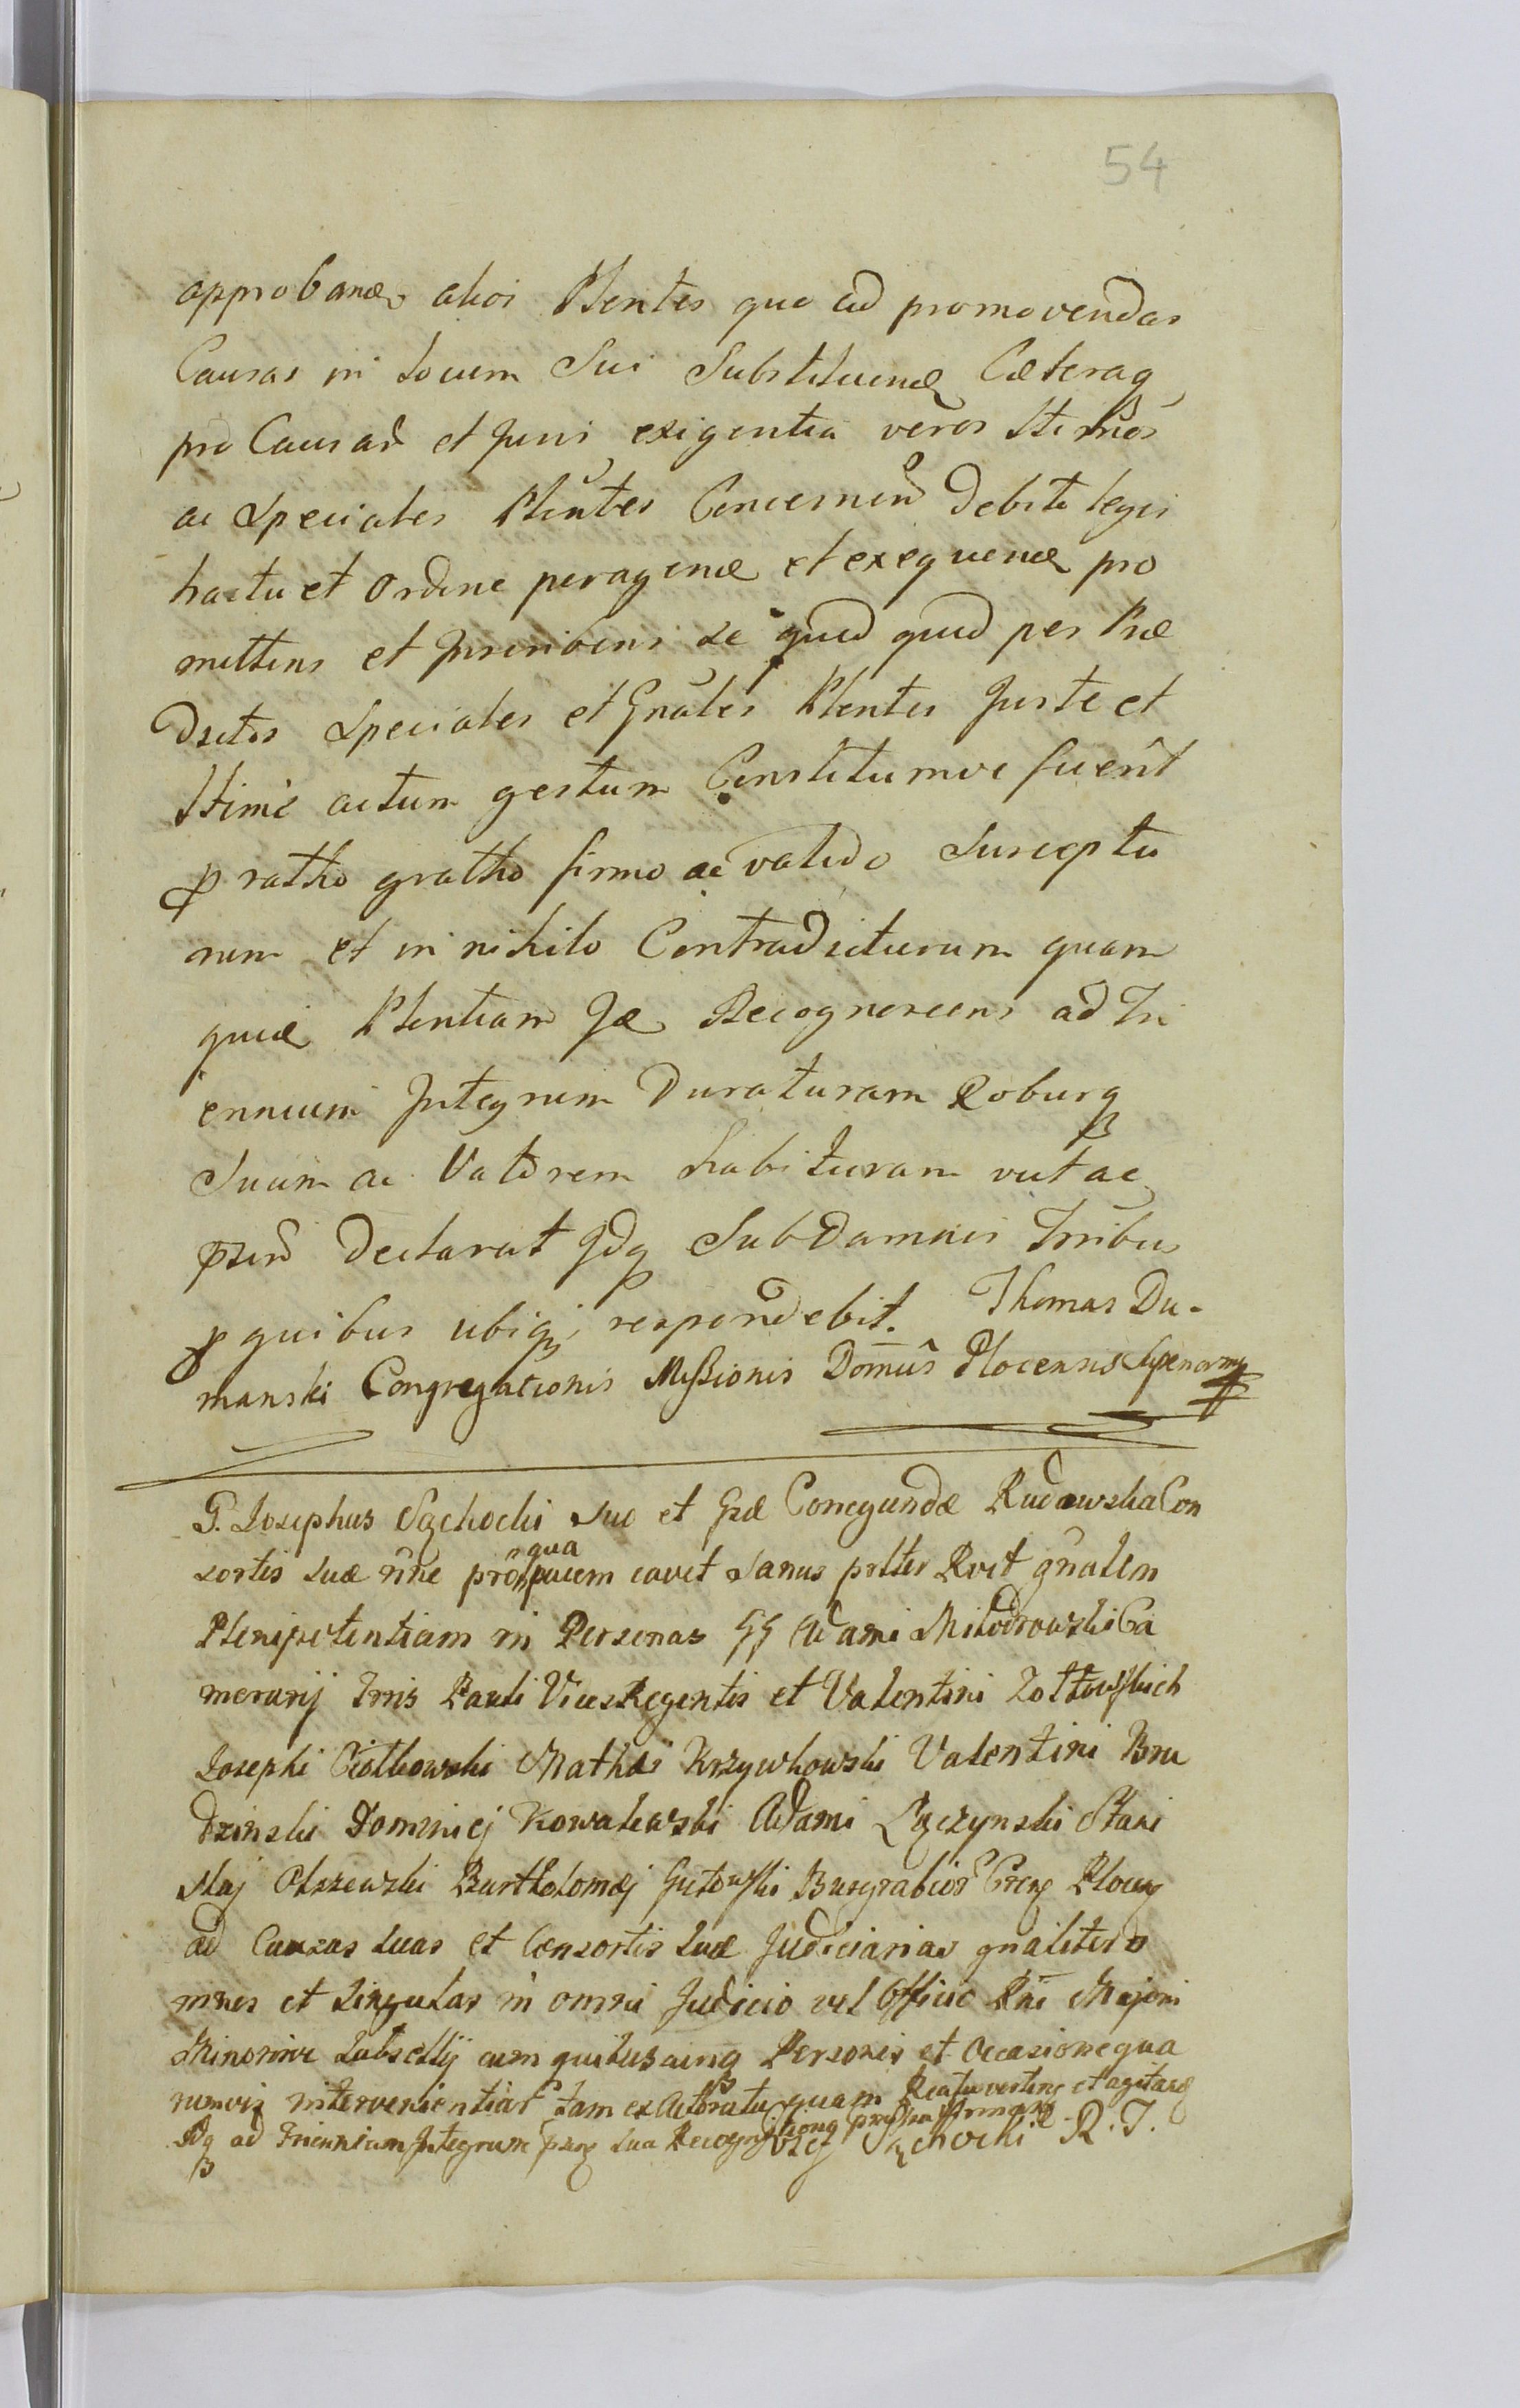 54
approband alios Plentes quo ad promovendas
Causas in Locum Sui Substituend Cæteraq
pro Causar et Juris exigentia veros Ltimos
ac Speciales Plentes Concernen Debito legis
tractu et Ordine peragend et exequend pro
mittens et Inscribens se quid quid per Præ
Dictos Speciales et Gnales Plentes Juste et
Ltime actum gestum Constitumve fuerit
p ratho gratho firmo ac valido Susceptu
rum et in nihilo Contradicturum quam
quid Plentiam Id Recognoscens ad Tri
ennium Integrum Duraturam Roburq
Suum ac Valorem habituram vut ac
pzen Declarat Idq Sub Damnis Trribus
p quibus ubiq respondebit. Thomas Du-
manski Congregationis Missionis Domus Plocensis Superior mp
G. Josephus Sąchocki Suo et Gsæ Conegundæ Rudowska Con
sortis suæ nne pro qua
pacem cavet Sanus pltter Rvit gnalem
Plenipotentiam in Personas GG Adami Milodrowski Ca
merarij Trris Pauli Vices Regentis et Valentini Zołtowskich
Josephi Ciołkowski Mathæi Krzywkowski Valentini Bru
dzinski Dominicj Kowalewski Adami Łączynski Stani
slaj Olszewski Bartholomæj Gutowski Burgrabior Cren Plocen
ad Causas suas et Consortis suæ Judiciarias gnaliter o
mnes et singulas in omni Judicio vel Officio Rni Majoris
Minorisve Subsellij cum quibusvinq Personis et Occasione qua
rumvis intervenientiar tam ex Actoratu quam Reatu verten et agitand
Idq ad Triennium Integrum pzen sua Recognitione
Sąchocki R. T.